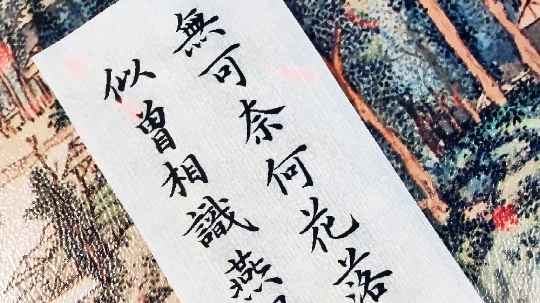 無可奈何花落
似曾相識燕